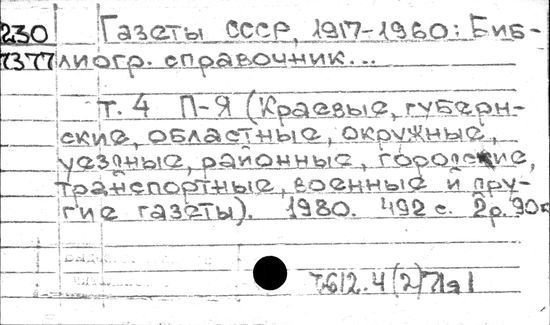 230 Газеты СССР, 1917-1960: Биб-
7377 лиогр. справочник...
т. 4 П-Я (Краевые, губерн-
ские, областные, окружные,
уездные, районные, городские,
транспортные, военные и дру-
гие газеты). 1980. 492 с. 2р. 90к